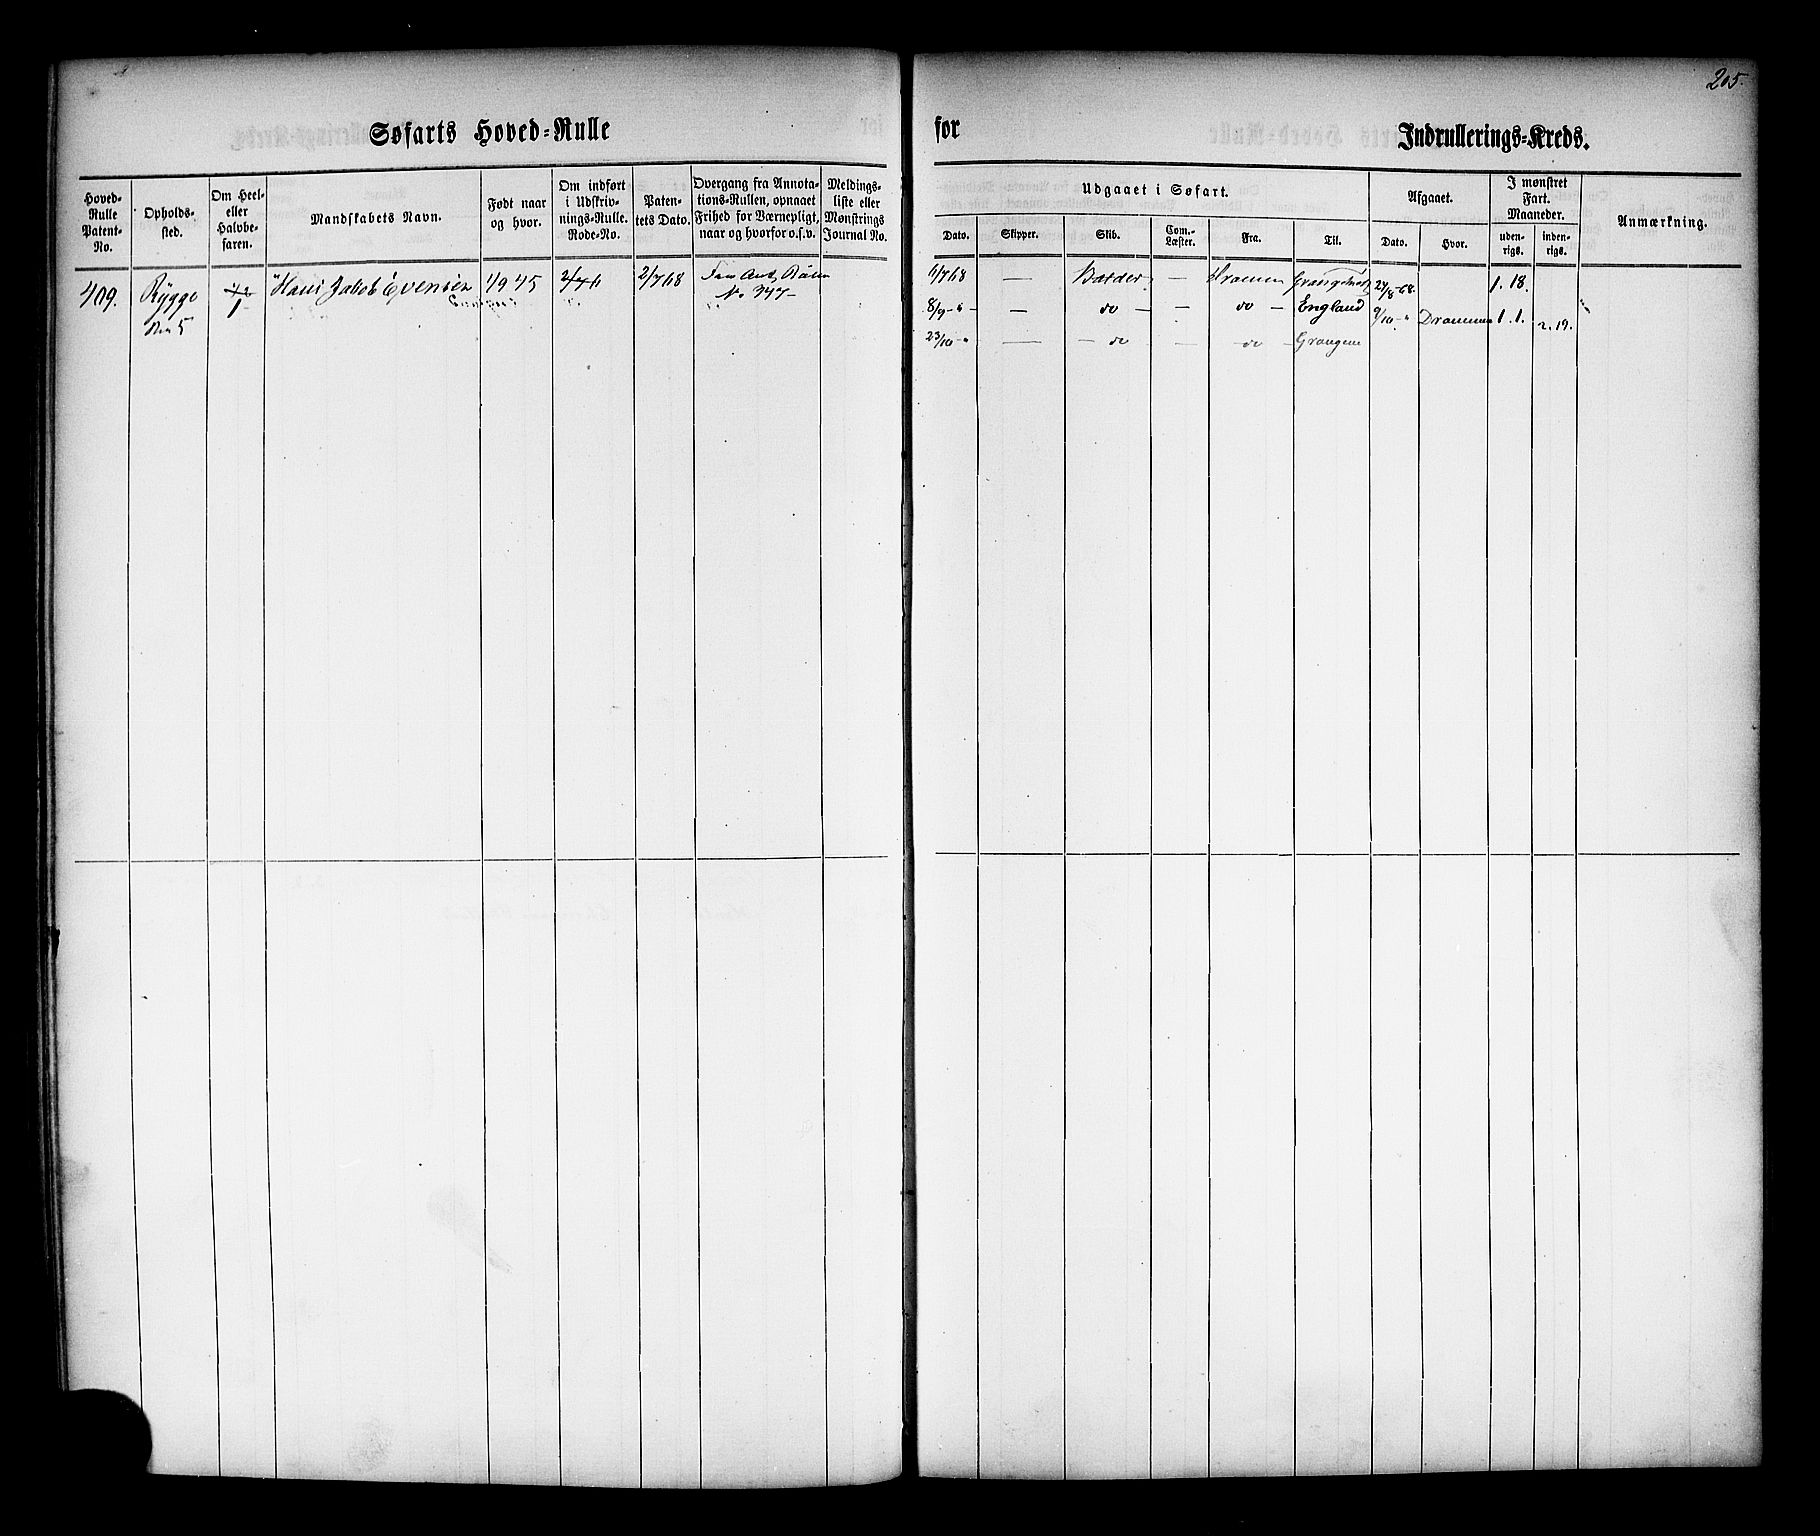 205.
Søfarts Hoved-Rulle
for
Indrullerings-Kreds.
Hoved-
Rulle
Patent-
No.
Opholds-
sted.
Om Heel-
eller
Halvbe-
faren.
Mandskabets Navn.
Født naar
og hvor.
Om indført
i Udskriv-
nings-Rulle.
Rode-No.
Paten-
tets Dato.
Overgang fra Annota-
tions-Rullen, opnaaet
Frihed for Værnepligt,
naar og hvorfor o.s.v.
Meldings-
liste eller
Mønstrings
Journal No.
Udgaaet i Søfart.
Dato.
Skipper.
Skib.
Com.-
Læster.
Fra.
Til.
Afgaaet.
Dato.
Hvor.
I mønstret
Fart.
Maaneder.
uden-
rigs.
inden-
rigs.
Anmærkning.
409. Rygge Hans Jakob Evensen 1/9 45 2/7 68
No 5 No 347-
6/7 68 — Balder — 27/8-68. 1. 18.
8/9-" — do — do — England 9/10-" Drammen 1. 1. 2. 19.
23/10-" — do — do —